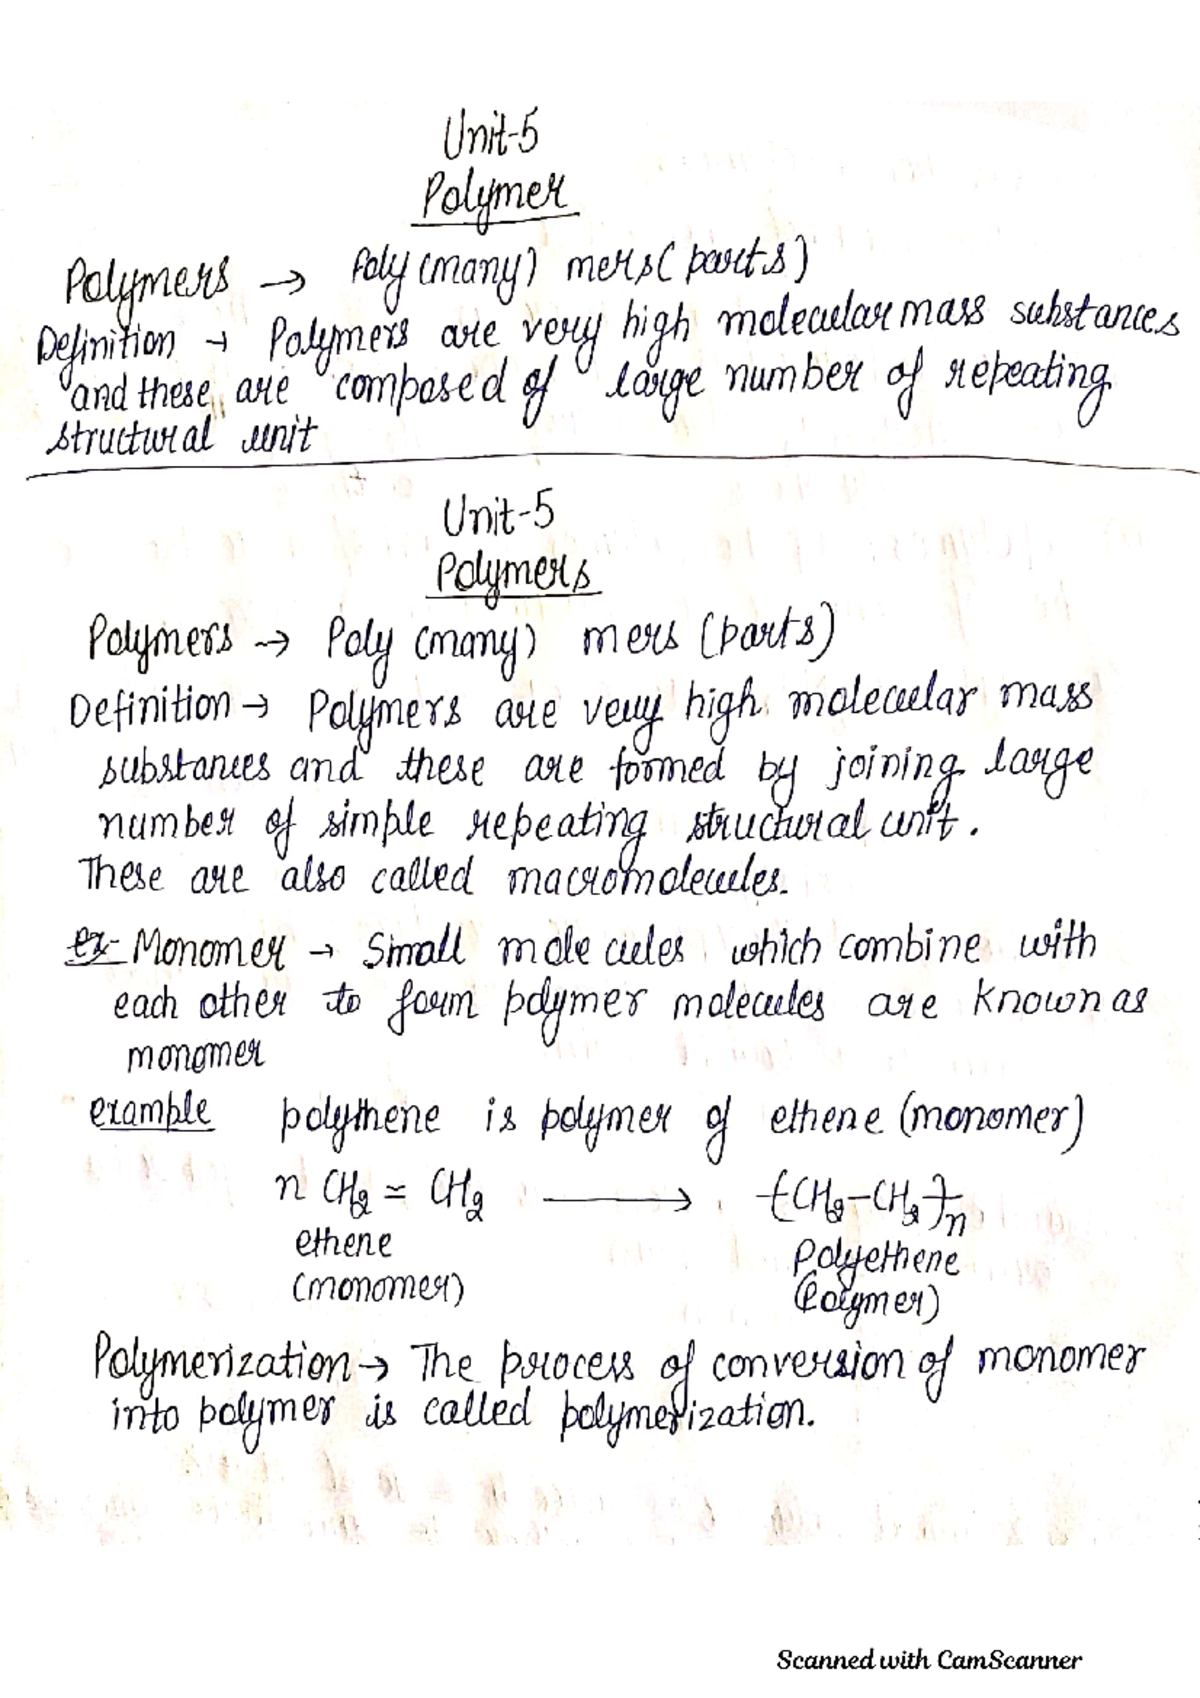 Unit-5
Polymer
Polymers → Poly (many) mers (parts)
Definition → Polymers are very high molecular mass substances
and these are composed of large number of repeating
structural unit
Unit-5
Polymers
Polymers → Poly (many) mers (parts)
Definition → Polymers are very high molecular mass
substances and these are formed by joining large
number of simple repeating structural unit.
These are also called macromolecules.
ex- Monomer → Small molecules which combine with
each other to form polymer molecules are known as
monomer
example polythene is polymer of ethene (monomer)
n CH2 = CH2 ⟶ -[CH2-CH2]-n
ethene Polyethene
(monomer) (Polymer)
Polymerization → The process of conversion of monomer
into polymer is called polymerization.
Scanned with CamScanner